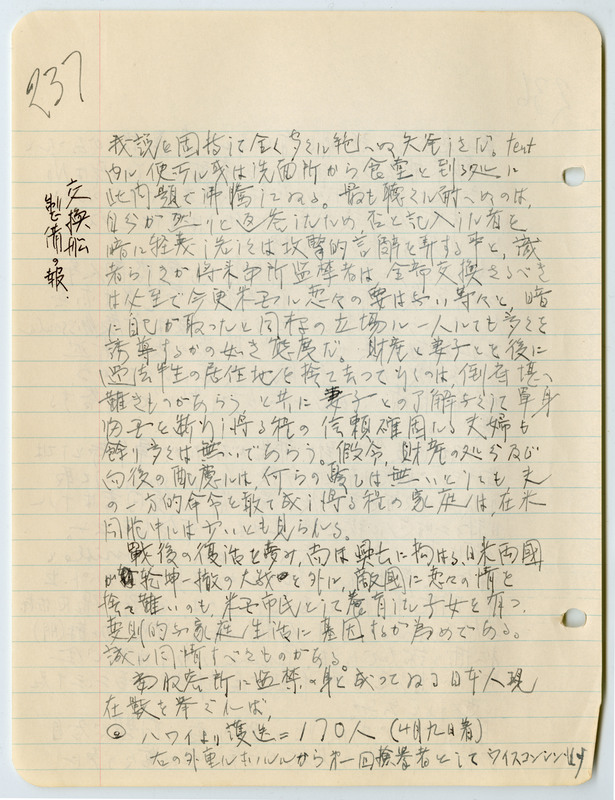 237
交換船
製備の報.
我説を固持して全く多くの
tent
内に便所に或は洗面所から食堂と到る処に
此内題で沸騰してゐる。最も聴くに耐へぬのは、
自分が然りと返答したため、否と記入した者を
暗に 攻撃的言辞を弄する事と、識
者らしきが将来当所監禁者は全部交換さるべき
は必至で今更米国に恋々の要はない等々と、暗
に自己が取ったと同様の立場に一人にても多くを
誘導するかの如き態度だ。財産と妻子とを後に
過去半生の居住地を捨て去って行くのは、倒底堪へ
難きものがあらう と共に妻子との了解なくして単身
を断行し得る程の信頼確固たる夫婦も
余り多くは無いであらう。仮令、財産の処分及び
向後の配慮には、何らの憂ひは無いとしても、夫
の一方的命令を敢て成し得る程の家庭は、在米
同胞中には少いとも見られる。
戦後の復活を夢み、尚は興亡に拘はる、日米両國
が乾坤一擲の大戦を外に、敵國に恋々の情を
捨て難いのも、米国市民として養育した子女を有つ、
変則的な家庭生活に基因するが為めである。
誠に同情すべきものがある。
当収容所に監禁の身と成ってゐる日本人現
在数を挙ぐれば、
ハワイより護送=170人(4月九日着)
右の外 ホノルルから第一回検挙者として ウイスコンシン